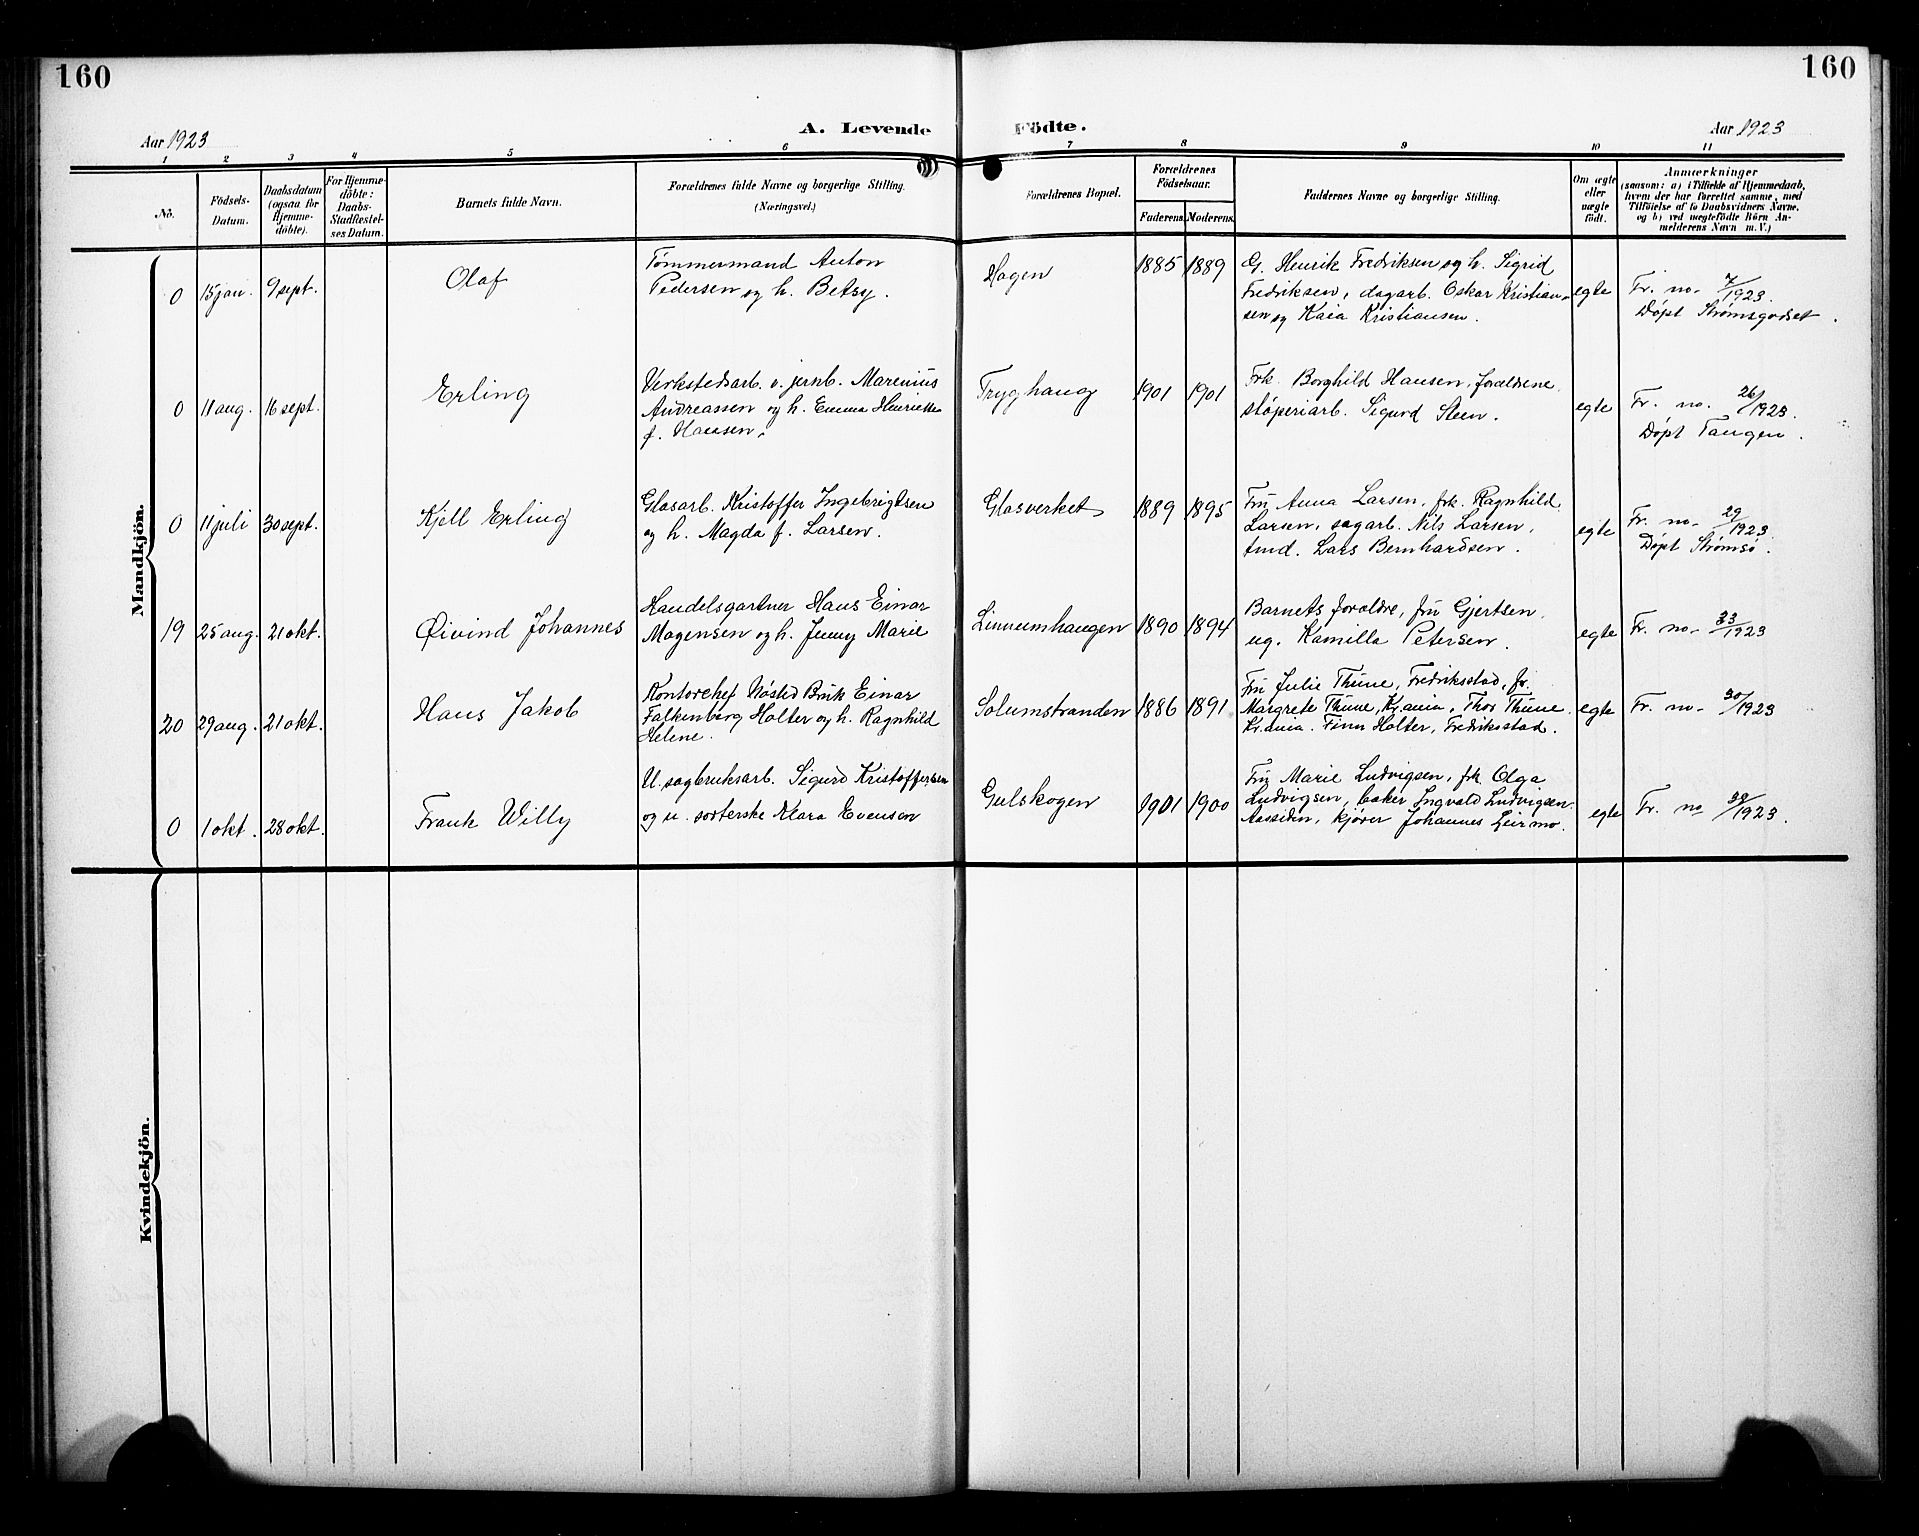 160
160
Aar 1923
A. Levende
Födte.
Aar 1923
1 2 3 4 5 6 7 8 9 10 11
No.
Födsels-
Datum.
Daabsdatum
(ogsaa for
Hjemme-
döbte).
For Hjemme-
döbte:
Daabs-
Stadfæstel-
ses Datum.
Barnets fulde Navn.
Forældrenes fulde Navne og borgerlige Stilling.
(Næringsvei.)
Forældrenes Bopæl.
Forældrenes
Födselsaar.
Faderens.
Moderens.
Faddernes Navne og borgerlige Stilling.
Om ægte
eller
uægte
födt.
Anmærkninger
(saasom: a) i Tilfælde af Hjemmedaab,
hvem der har forrettet samme, med
Tilföielse af to Daabsvidners Navne,
og b) ved uægtefödte Börn An-
melderens Navn m. V.)
Mandkjön.
0
15 jan.
9 sept.
Olaf
Tømmermand Anton
Pedersen og h. Betsy.
Hagen
1885
1889
G. Henrik Fredriksen og h. Sigrid
Fredriksen, dagarb. Oskar Kristian-
sen og Kaia Kristiansen.
egte
Fr. no. 7/1923.
Døpt Strømsgodset.
0
11 aug.
16 sept.
Erling
Verkstedsarb. v. jernb. Marenius
Andreassen og h. Emma Henriette
f. Hansen.
Tryghaug
1901
1901
Frk. Borghild Hansen, forældrene,
støperiarb. Sigurd Steen.
egte
Fr. no. 26/1923.
Døpt Tangen.
0
11 juli
30 sept.
Kjell Erling
Glasarb. Kristoffer Ingebrigtsen
og h. Magda f. Larsen.
Glasverket
1889
1895
Fru Anna Larsen, frk. Ragnhild
Larsen, sagarb. Nils Larsen,
tmd. Lars Bernhardsen.
egte
Fr. no. 29/1923.
Døpt Strømsø.
19
25 aug.
21 okt.
Øivind Johannes
Handelsgartner Hans Einar
Magensen og h. Jenny Marie
Linnumhaugen
1890
1894
Barnets forældre, fru Gjertsen,
ug. Kamilla Petersen.
egte
Fr. no. 33/1923
20
29 aug.
21 okt.
Hans Jakob
Kontorchef Nøsted Bruk Einar
Falkenberg Holter og h. Ragnhild
Helene.
Solumstranden
1886
1891
Fru Julie Thune, Fredriksstad, fr.
Margrete Thune, Kr.ania, Thor Thune
Kr.ania. Finn Holter, Fredriksstad.
egte
Fr. no. 30/1923
0
1 okt.
28 okt.
Frank Willy
U. sagbruksarb. Sigurd Kristoffersen
og u. sorterske Klara Evensen
Gulskogen
1901
1900
Fru Marie Ludvigsen, frk Olga
Ludvigsen, baker Ingvald Ludvigsen
Aassiden, kjører Johannes Leirmo.
egte
Fr. no 39/1923.
Kvindekjön.